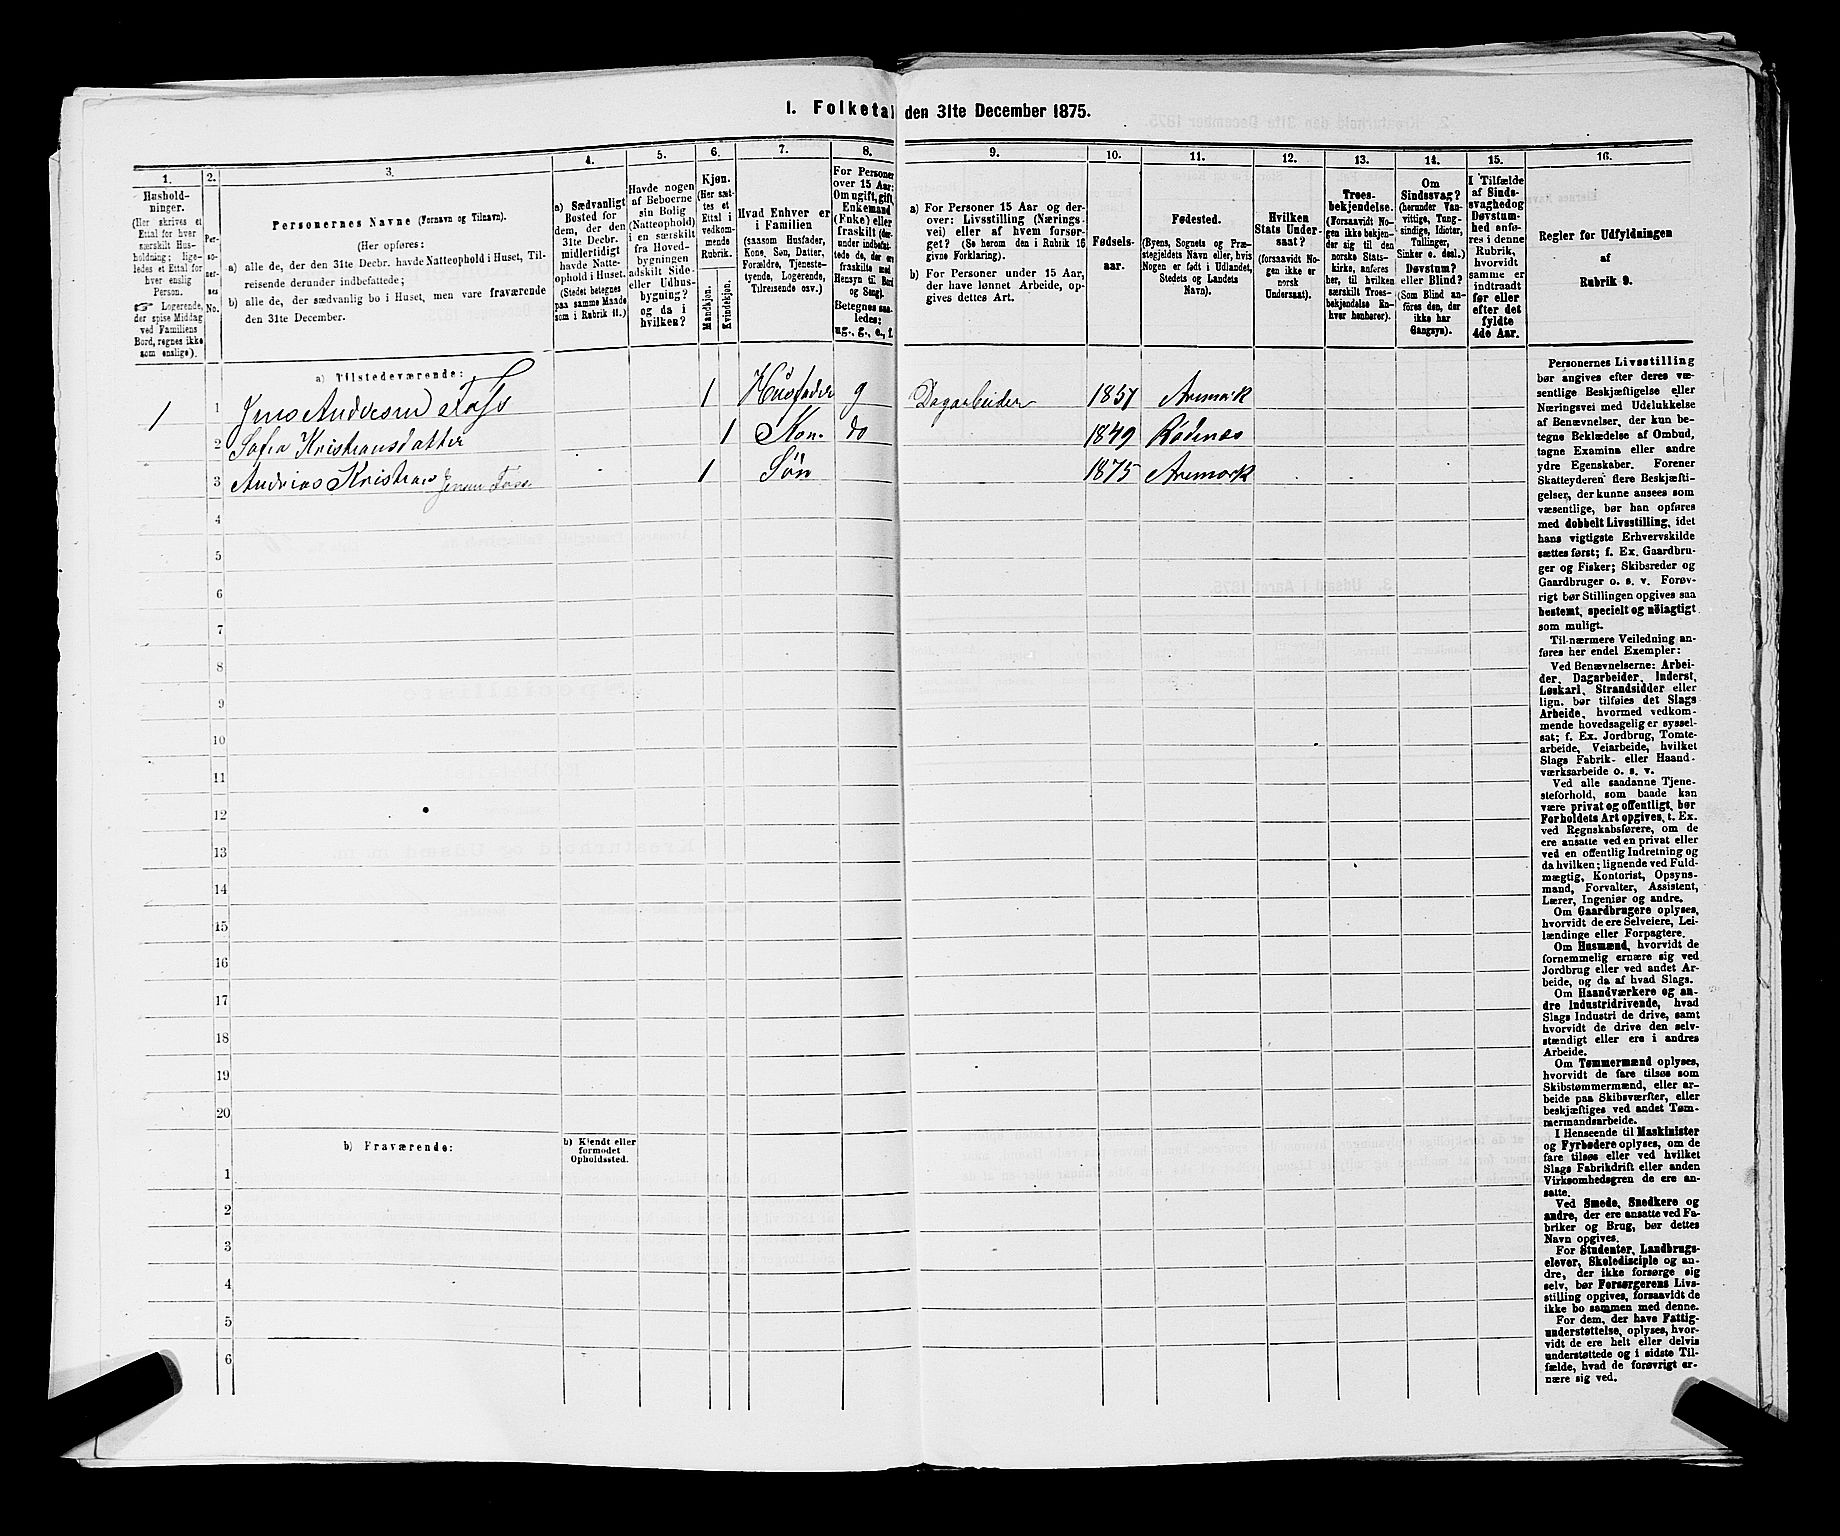 1. Folketal den 31te December 1875.
1. 2. 3. 4. 5. 6. 7. 8. 9. 10. 11. 12. 13. 14. 15. 16.
Hushold-
ninger.
(Her skrives et
Ettal for hver
særskilt Hus-
holdning; lige-
ledes et Ettal for
hver enslig
Person.
☞ Logerende,
der spise Middag
ved Familiens
Bord, regnes ikke
som enslige).
Per-
so-
ner-
nes
No.
Personernes Navne (Fornavn og Tilnavn).
(Her opføres:
a) alle de, der den 31te Decbr. havde Natteophold i Huset, Til-
reisende derunder indbefattede;
b) alle de, der sædvanlig bo i Huset, men vare fraværende
den 31te December.
a) Sædvanligt
Bosted for
dem, der den
31te Decbr.
midlertidigt
havde Natte-
ophold i Huset.
(Stedet betegnes
paa samme Maade
som i Rubrik 11.)
Havde nogen
af Beboerne
sin Bolig
(Natteophold)
i en særskilt
fra Hoved-
bygningen
adskilt Side-
eller Udhus-
bygning?
og da i
hvilken?
Kjøn.
(Her sæt-
tes et
Ettal i
vedkom-
mende
Rubrik.
Mandkjøn.
Kvindekjøn.
Hvad Enhver er
i Familien
(saasom Husfader,
Kone, Søn, Datter,
Forældre, Tjeneste-
tyende, Logerende,
Tilreisende osv.)
For Personer
over 15 Aar:
Om ugift, gift,
Enkemand
(Enke) eller
fraskilt (der-
under indbefat-
tede de, der ere
fraskilte med
Hensyn til Bord
og Seng).
Betegnes saa-
ledes:
ug., g., e., f.
a) For Personer 15 Aar og der-
over: Livsstilling (Nærings-
vei) eller af hvem forsør-
get? (Se herom den i Rubrik 16
givne Forklaring).
b) For Personer under 15 Aar,
der have lønnet Arbeide, op-
gives dettes Art.
Fødsels-
aar.
Fødested.
(Byens, Sognets og Præ-
stegjeldets Navn eller, hvis
Nogen er født i Udlandet,
Stedets og Landets
Navn).
Hvilken
Stats Under-
saat?
(forsaavidt No-
gen ikke er
norsk
Undersaat).
Troes-
bekjendelse.
(Forsaavidt No-
gen ikke bekjen-
der sig til den
norske Stats-
kirke, anføres
her, til hvilken
særskilt Troes-
bekjendelse En-
hver henhører).
Om
Sindssvag?
(herunder Van-
vittige, Tung-
sindige, Idioter,
Tullinger,
Sinker o. desl.)
Døvstum?
eller Blind?
(Som Blind an-
føres den, der
ikke har
Gangsyn).
I Tilfælde
af Sinds-
svaghed og
Døvstum-
hed anfø-
res i denne
Rubrik,
hvorvidt
samme er
indtraadt
før eller
efter det
fyldte
4de Aar.
Regler for Udfyldningen
af
Rubrik 9.
a) Tilstedeværende:
1 1 Jens Andersen Foss 1 Husfader g Dagarbeider 1851 Aremark
2 Sofia Kristiansdatter 1 Kon. do 1849 Rødenæs
3 Andrias Kristian Jensen Foss 1 Søn 1875 Aremark
4
5
6
7
8
9
10
11
12
13
14
15
16
17
18
19
20
b) Fraværende:
b) Kjendt eller
formodet
Opholdssted.
1
2
3
4
5
6
Personernes Livsstilling
bør angives efter deres væ-
sentlige Beskjæftigelse eller
Næringsvei med Udelukkelse
af Benævnelser, der kun be-
tegne Beklædelse af Ombud,
tagne Examina eller andre
ydre Egenskaber. Forener
Skatteyderen flere Beskjæfti-
gelser, der kunne ansees som
væsentlige, bør han opføres
med dobbelt Livsstilling, idet
hans vigtigste Erhvervskilde
sættes først; f. Ex. Gaardbru-
ger og Fisker; Skibsreder og
Gaardbruger o. s. v. Forøv-
rigt bør Stillingen opgives saa
bestemt, specielt og nöiagtigt
som muligt.
Til nærmere Veiledning an-
føres her endel Exempler:
Ved Benævnelserne: Arbei-
der, Dagarbeider, Inderst,
Løskarl, Strandsidder eller
lign. bør tilføies det Slags
Arbeide, hvormed vedkom-
mende hovedsagelig er syssel-
sat; f. Ex. Jordbrug, Tomte-
arbeide, Veiarbeide, hvilket
Slags Fabrik- eller Haand-
værksarbeide o. s. v.
Ved alle saadanne Tjene-
steforhold, som baade kan
være privat og offentligt, bør
Forholdets Art opgives, t. Ex.
ved Regnskabsførere, om de
ere ansatte ved en privat eller
ved en offentlig Indretning og
da hvilken; lignende ved Fuld-
mægtig, Kontorist, Opsyns-
mand, Forvalter, Assistent,
Lærer, Ingeniør og andre.
Om Gaardbrugere oplyses,
hvorvidt de ere Selveiere, Lei-
lændinge eller Forpagtere.
Om Husmænd, hvorvidt de
fornemmelig ernære sig ved
Jordbrug eller ved andet Ar-
beide, og da af hvad Slags.
Om Haandværkere og an-
dre Industridrivende, hvad
Slags Industri de drive, samt
hvorvidt de drive den selv-
stændigt eller ere i andres
Arbeide.
Om Tømmermænd oplyses,
hvorvidt de fare tilsøs som
Skibstømmermænd, eller ar-
beide paa Skibsværfter, eller
beskjæftiges ved andet Tøm-
mermandsarbeide.
I Henseende til Maskinister
og Fyrbødere oplyses, om de
fare tilsøs eller ved hvilket
Slags Fabrikdrift eller anden
Virksomhedsgren de ere an-
satte.
Ved Smede, Snedkere og
andre, der ere ansatte ved Fa-
briker og Brug, bør dettes
Navn opgives.
For Studenter, Landbrugs-
elever, Skoledisciple og an-
dre, der ikke forsørge sig
selv, bør Forsørgerens Livs-
stilling opgives, forsaavidt de
ikke bo sammen med denne.
For dem, der have Fattig-
understøttelse, oplyses, hvor-
vidt de ere helt eller delvis
understøttede og i sidste Til-
fælde, hvad de forøvrigt er-
nære sig ved.